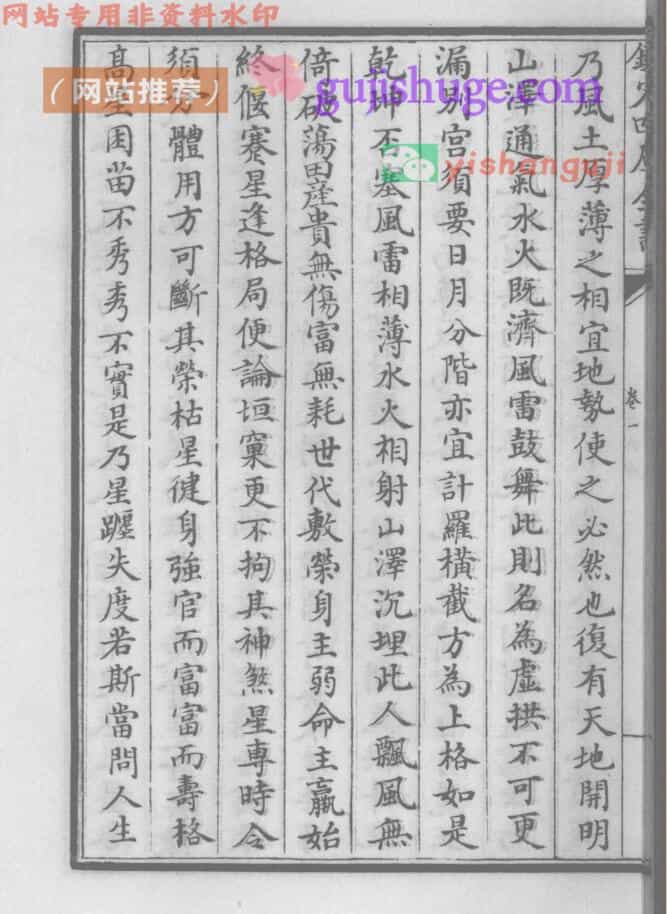 网站专用非资料水印
（网站推荐）
gujishuge.com
yishanguji
卷一
乃風土厚薄之相宜地勢使之必然也復有天地開明
山澤通氣水火既濟風雷鼓舞此則名為虛拱不可更
漏別宮須要日月分階亦宜計羅橫截方為上格如是
乾坤否塞風雷相薄水火相射山澤沉埋此人飄風無
倚破蕩田産貴無傷富無耗世代敷榮身主弱命主羸始
終偃蹇星逢格局便論垣窠更不拘其神煞星專時令
須分體用方可斷其榮枯星健身強官而富富而壽格
高星困苗不秀秀不實是乃星躔失度若斯當問人生